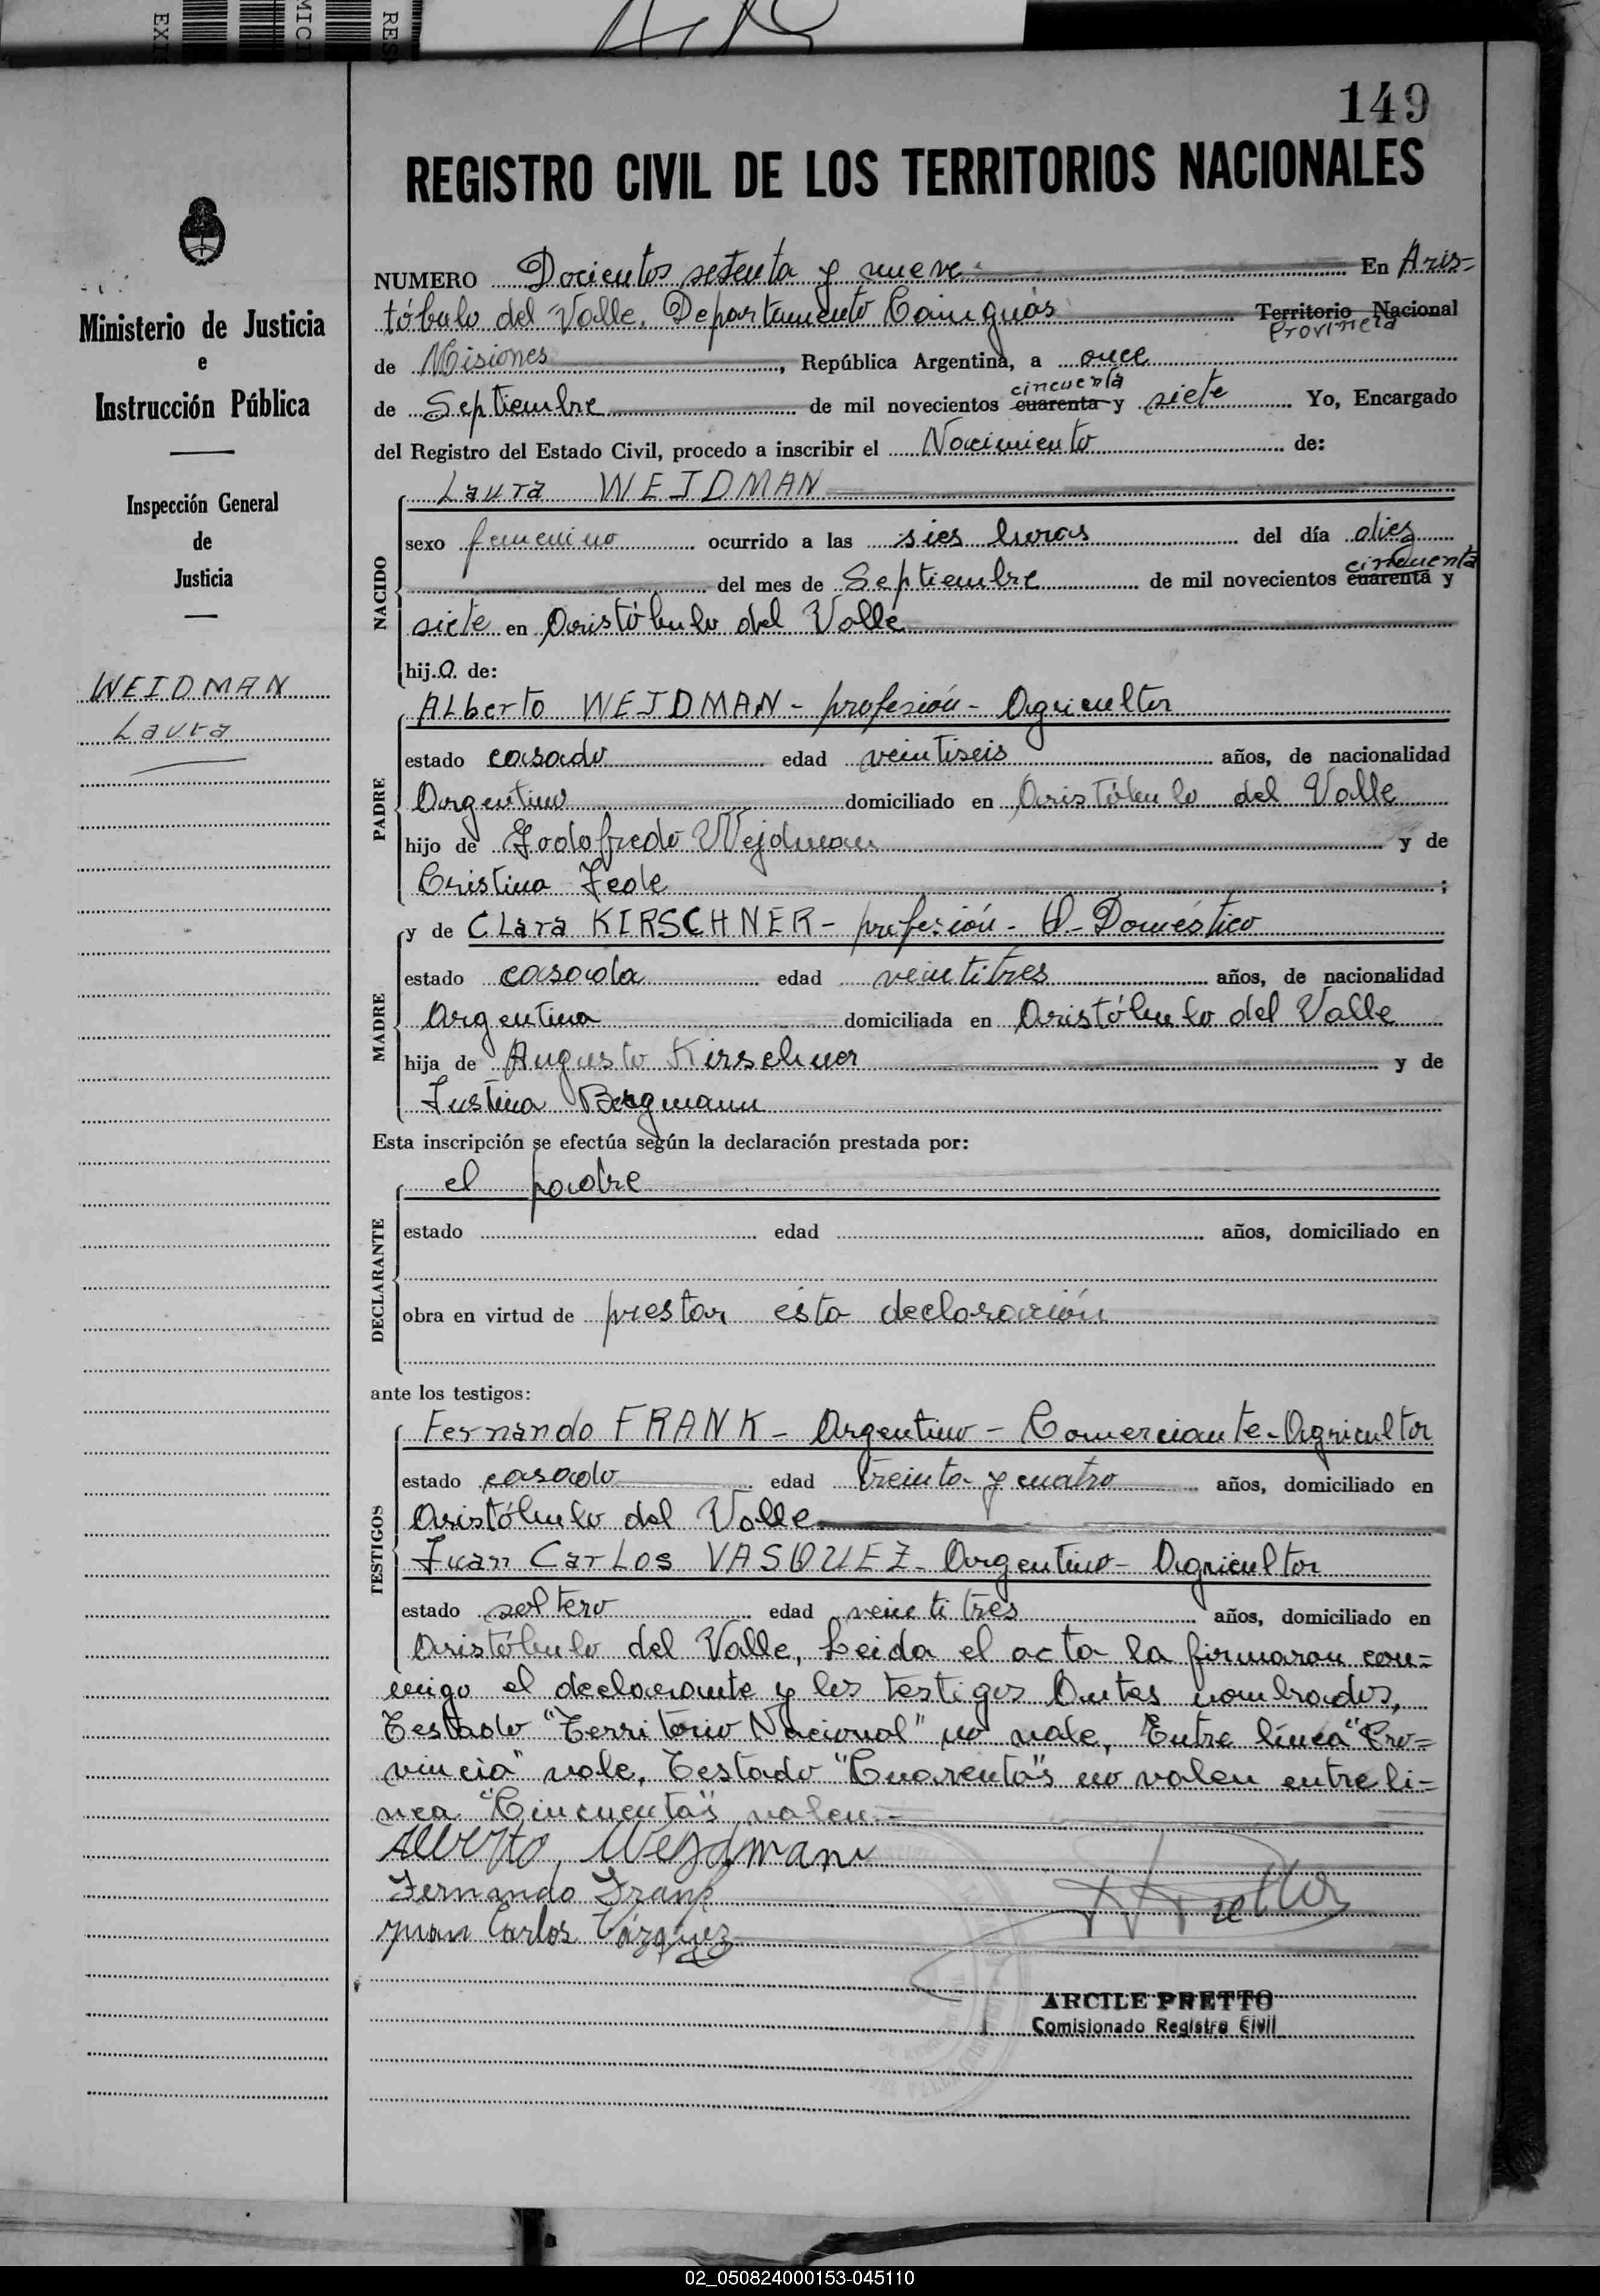 EXI
MICI
RES
149
REGISTRO CIVIL DE LOS TERRITORIOS NACIONALES
Ministerio de Justicia
e
Instrucción Pública
Inspección General
de
Justicia
WEIDMAN
Laura
NUMERO Docientos setenta y nueve En Aris-
tóbulo del Valle. Departamento Cainguás Territorio Nacional
Provincia
de Misiones, República Argentina, a once
cincuenta
de Septiembre de mil novecientos cuarenta y siete Yo, Encargado
del Registro del Estado Civil, procedo a inscribir el Nacimiento de:
NACIDO
Laura WEIDMAN
sexo femenino ocurrido a las sies horas del día diez
cincuenta
del mes de Septiembre de mil novecientos cuarenta y
siete en Aristóbulo del Valle
hija de:
PADRE
Alberto WEIDMAN - profesión - Agricultor
estado casado edad veintiseis años, de nacionalidad
Argentino domiciliado en Aristóbulo del Valle
hijo de Godofredo Wejdman y de
Cristina ;
MADRE
y de Clara KIRSCHNER - profesión - Q. Doméstico
estado casada edad veintitres años, de nacionalidad
Argentina domiciliada en Aristóbulo del Valle
hija de Augusto Kirschner y de
Justina Bergmann
Esta inscripción se efectúa según la declaración prestada por:
DECLARANTE
el padre
estado edad años, domiciliado en
obra en virtud de prestar ésta declaración
ante los testigos:
TESTIGOS
Fernando FRANK - Argentino - Comerciante - Agricultor
estado casado edad treinta y cuatro años, domiciliado en
Aristóbulo del Valle
Juan Carlos VASQUEZ - Argentino - Agricultor
estado soltero edad veintitres años, domiciliado en
Aristóbulo del Valle, Leida el acta la firmaron con-
migo el declarante y los testigos Antes nombrados,
Testado "Territorio Nacional" no vale, Entre línea "Pro-
vincia" vale. Testado "Cuarenta"s no valen entre lí-
nea "Cincuenta"s valen.-
Alberto, Wejdman
Fernando Frank
Juan Carlos Vázquez
Pretto
ARCILE PRETTO
Comisionado Registro Civil
02_050824000153-045110